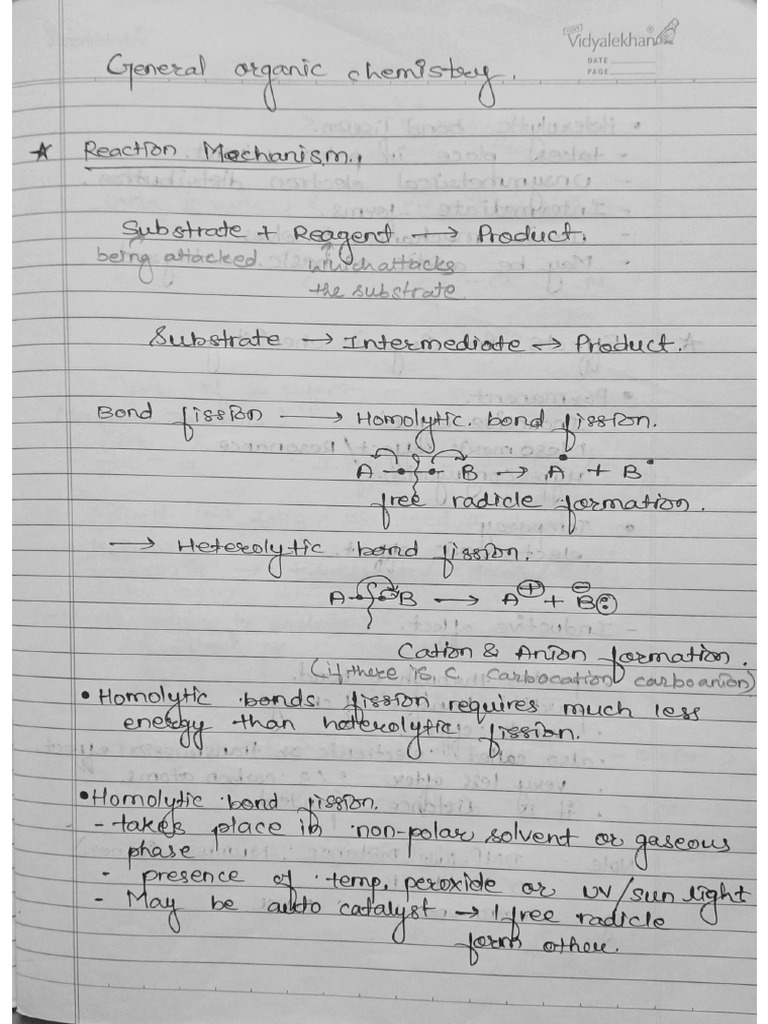 Vidyalekhan
DATE
PAGE
General organic chemistry.
★ Reaction Mechanism.
Substrate + Reagent → Product.
being attacked. which attacks
the substrate
Substrate → Intermediate → Product.
Bond fission → Homolytic bond fission.
A B → A• + B•
free radicle formation.
→ Heterolytic bond fission.
A B → A⊕ + B⊖:
Cation & Anion formation.
(if there is C carbocation carboanion)
• Homolytic bonds fission requires much less
energy than heterolytic fission.
• Homolytic bond fission.
- takes place in non-polar solvent or gaseous
phase
- presence of temp, peroxide or UV/sun light
- May be auto catalyst → 1 free radicle
form other.